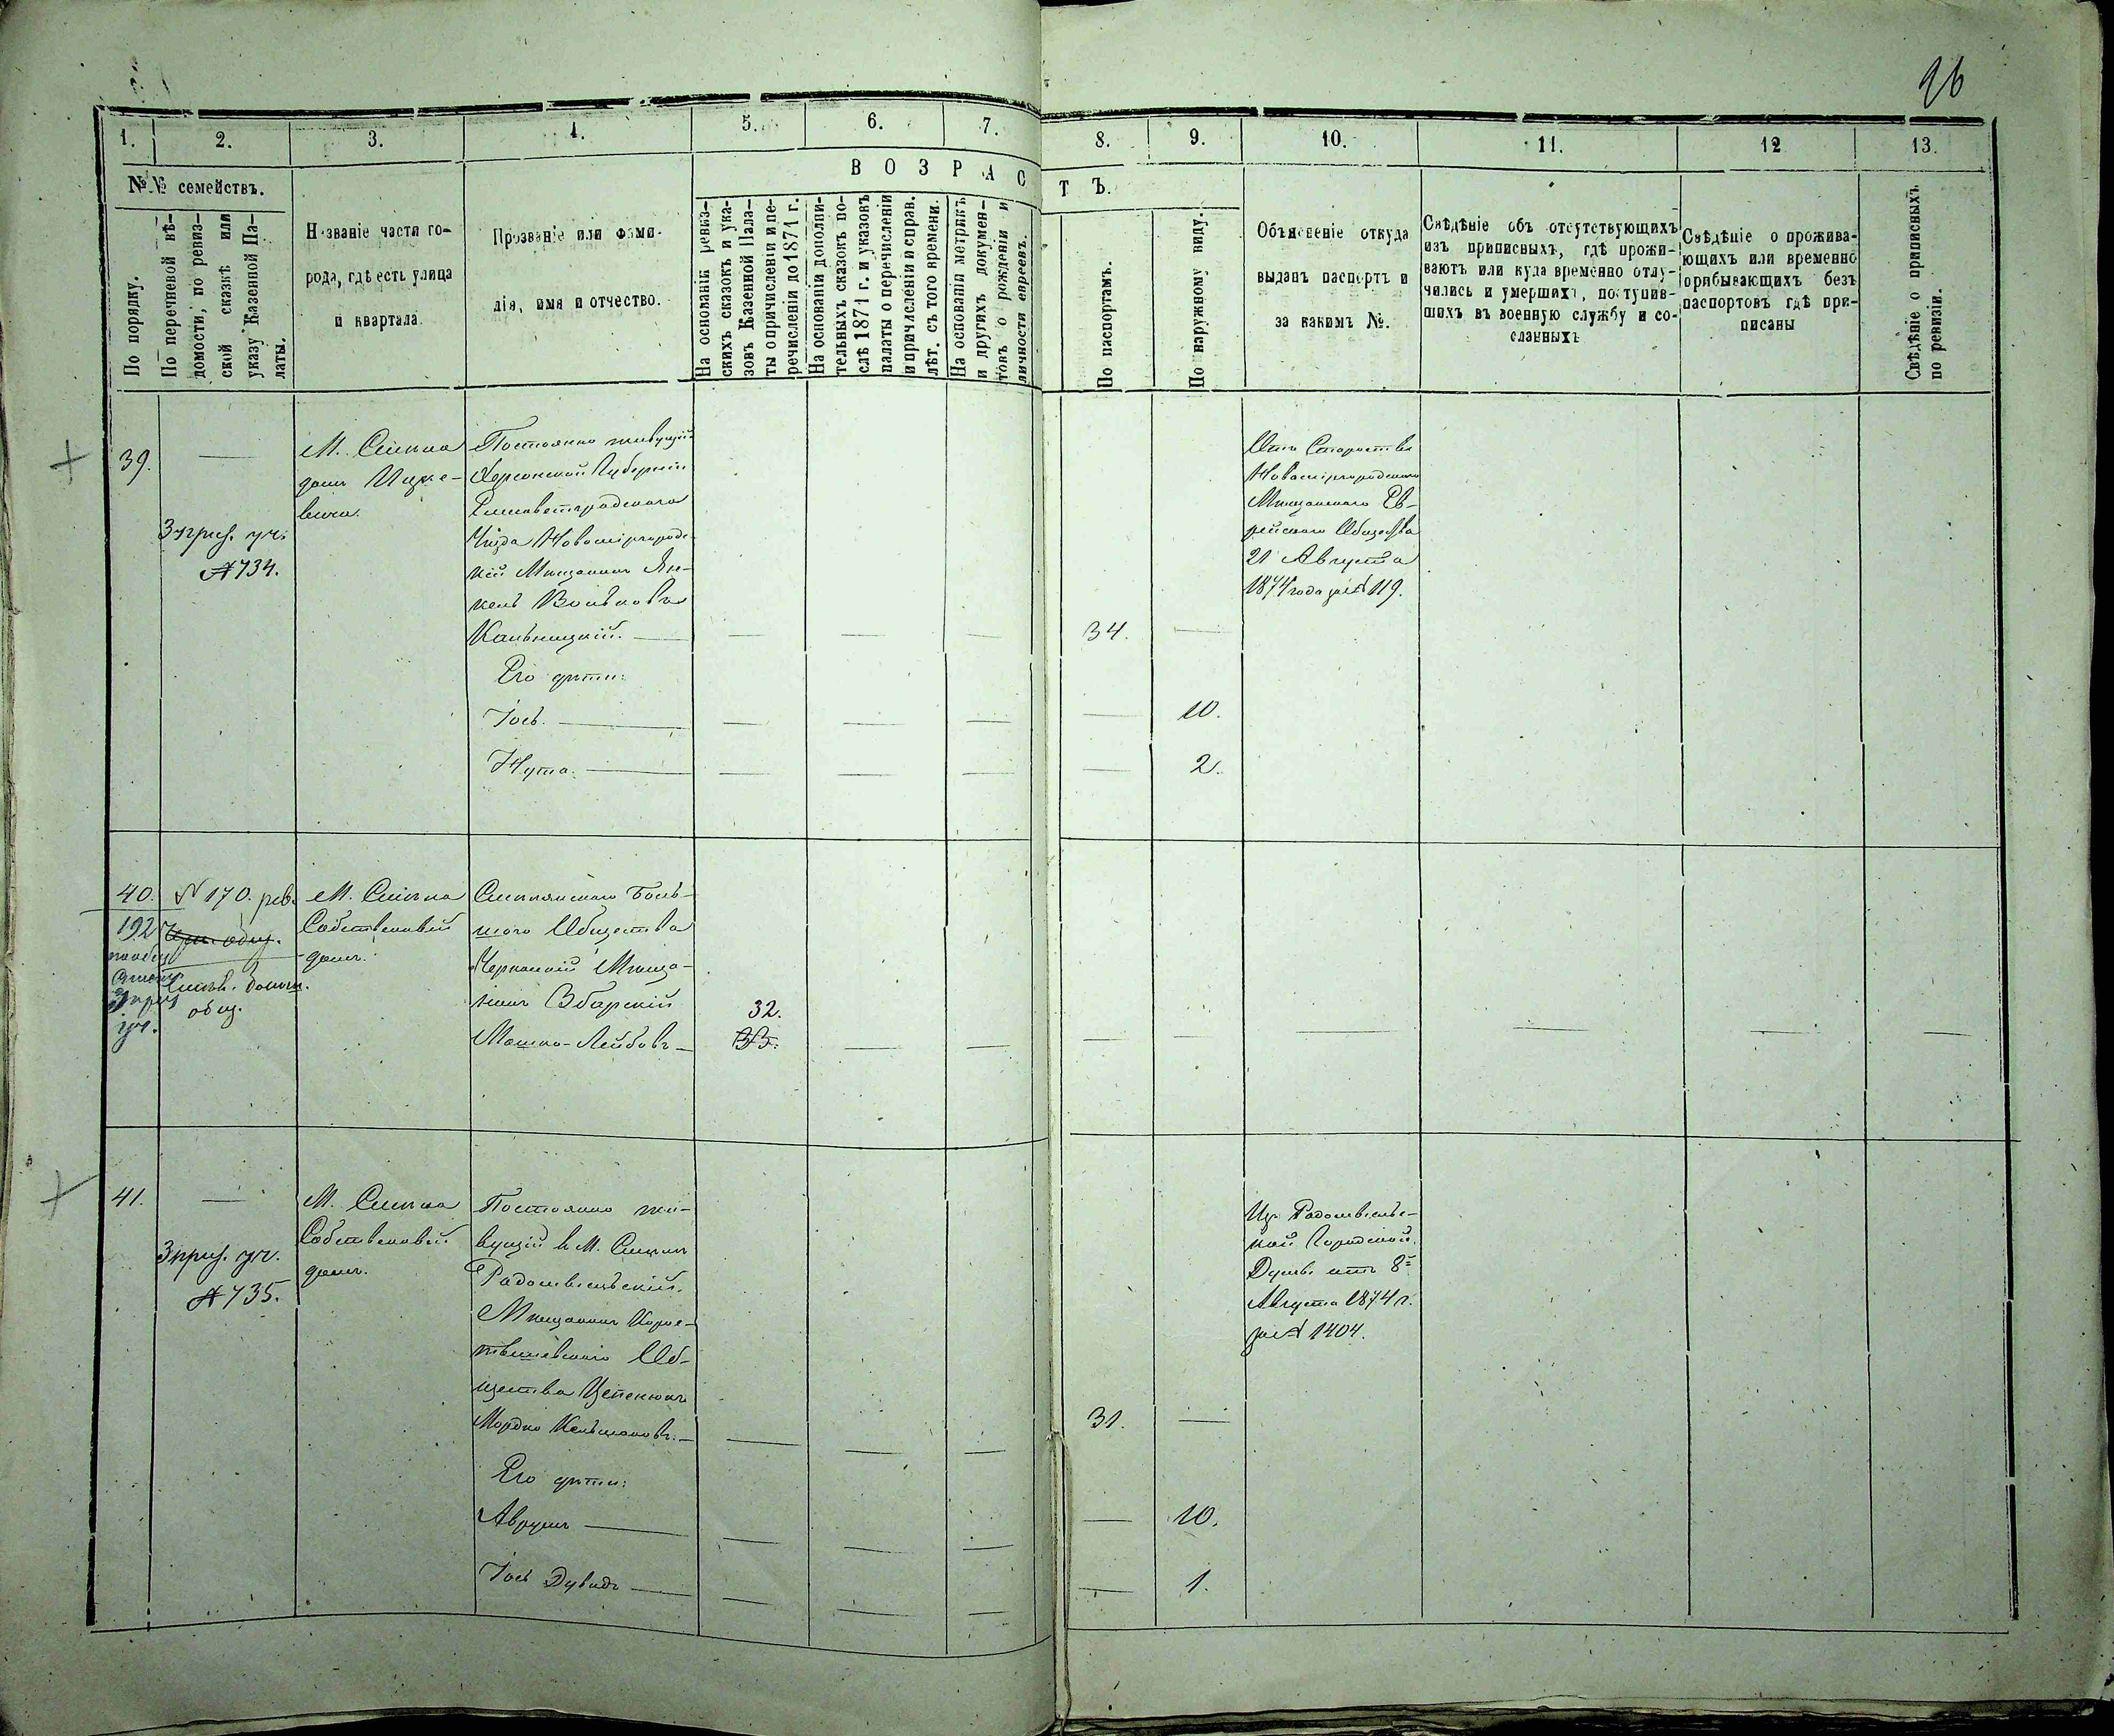 96
1. 2. 3. 4. 5. 6. 7. 8. 9. 10. 11. 12 13.
№№ семействъ.
По порядку.
По перечневой вѣ-
домости, по ревиз-
ской сказкѣ или
указу Казенной Па-
латы.
Названіе части го-
рода, гдѣ есть улица
и квартала.
Прозваніе или фами-
лія, имя и отчество.
ВОЗРАСТЪ.
На основаніи ревиз-
скихъ сказокъ и ука-
зовъ Казенной Пала-
ты о причисленіи и пе-
речисленіи до 1871 г.
На основаніи дополни-
тельныхъ сказокъ по-
слѣ 1871 г. и указовъ
палаты о перечисленіи
и причисленіи и справ.
лѣт. съ того времени.
На основаніи метрикъ
и другихъ докумен-
товъ о рожденіи и
личности евреевъ.
По паспортамъ.
По наружному виду.
Объясненіе откуда
выданъ паспортъ и
за какимъ №.
Свѣдѣніе объ отсутствующихъ
изъ приписныхъ, гдѣ прожи-
ваютъ или куда временно отлу-
чились и умершихъ, поступив-
шихъ въ военную службу и со-
сланныхъ
Свѣдѣніе о прожива-
ющихъ или временно
прибывающихъ безъ
паспортовъ гдѣ при-
писаны
Свѣдѣніе о приписныхъ
по ревизіи.
39.
3 приз. уч.
№ 734.
М. Смѣла
домъ Ицке-
вича.
Постоянно живущій
Херсонской Губерніи
Елисаветградскаго
Уѣзда Новомиргородс-
кій Мѣщанинъ Ян-
кель Вольковъ
Кальницкій.
34.
Отъ Староства
Новомиргородскаго
Мѣщанскаго Ев-
рейскаго Общества
21 Августа
1874 года за № 119.
Его дѣти:
Іось. 10.
Нута. 2.
40.
192
N 170. рев.
общ.
общ.
уч.
М. Смѣла
Собственный
домъ.
Смѣлянскаго Боль-
шого Общества
Черкаскій Мѣща-
нинъ Збарскій
Мошко-Лейбовъ
32.
33.
41.
3 приз. уч.
№ 735.
М. Смѣла
Собственный
домъ.
Постоянно жи-
вущій в М. Смѣлѣ
Радомысльскій
Мѣщанинъ Корос-
тышевскаго Об-
щества Цепенюкъ
Мордко Кельмановъ.
31.
Изъ Радомысльс-
кой Городской
Думы отъ 8
Августа 1874 г.
за № 1404.
Его дѣти:
Аврумъ 10.
Іось Дувидъ 1.